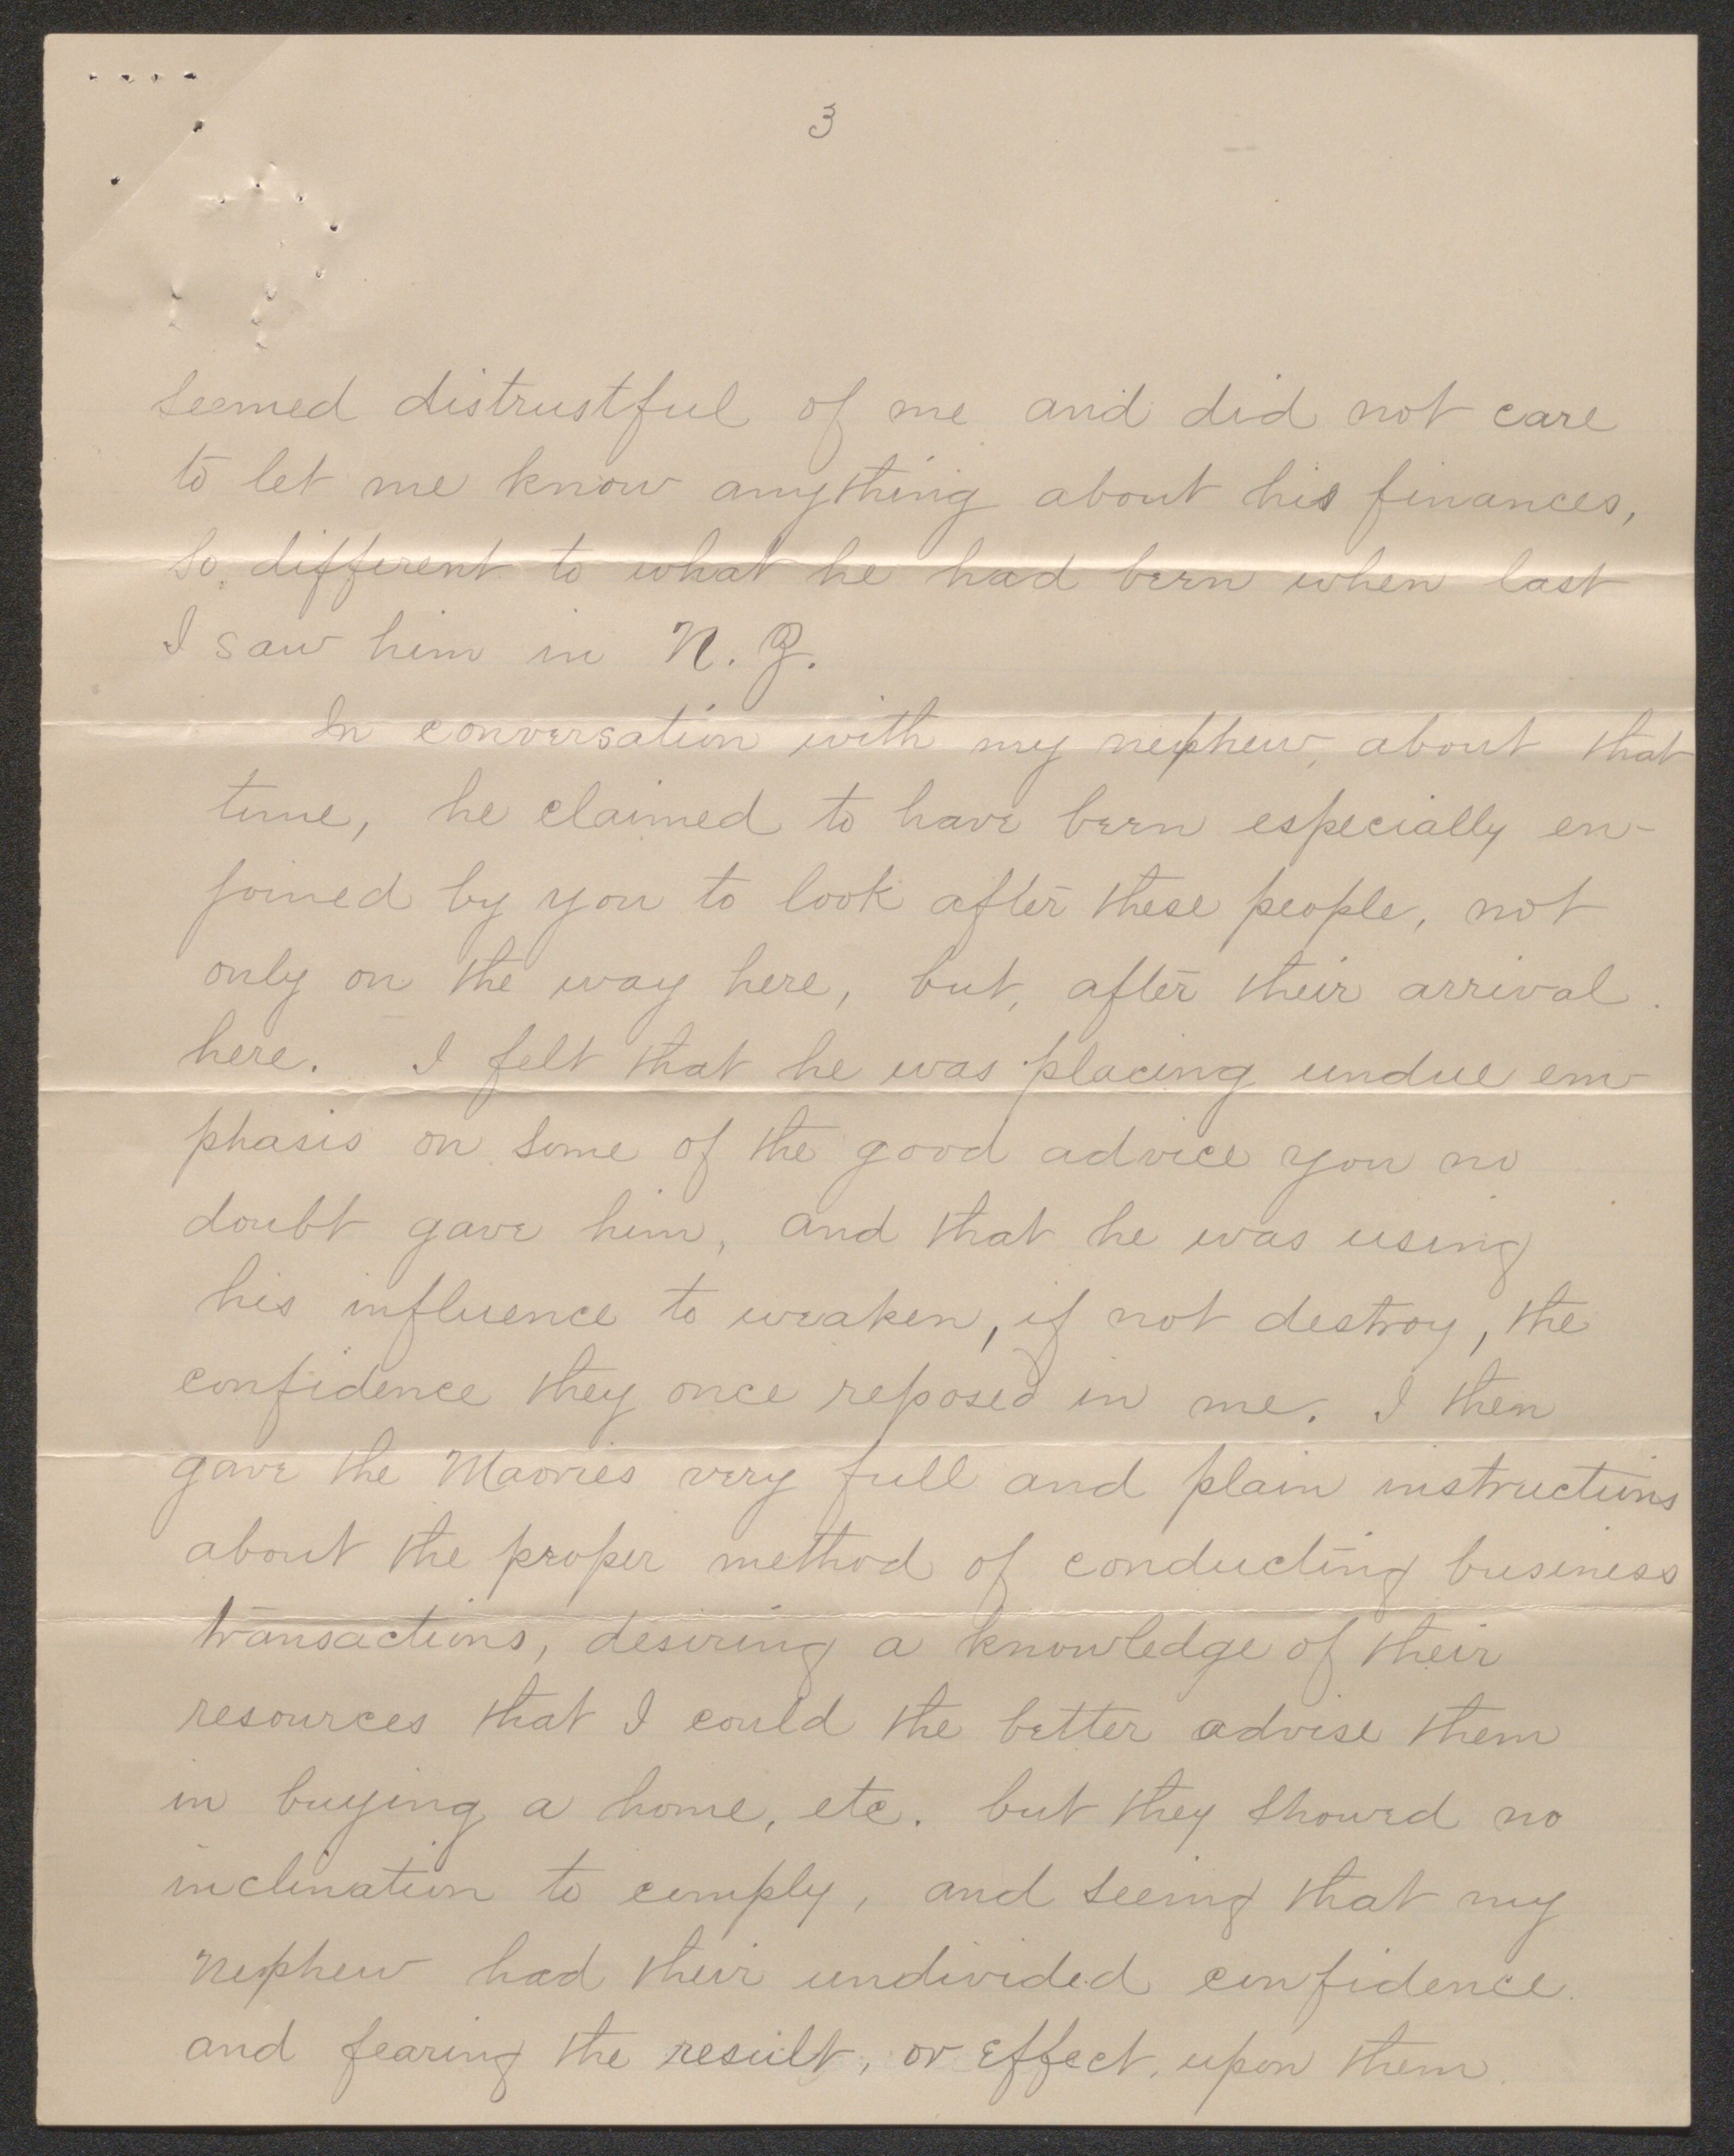 3
seemed distrustful of me and did not care
to let me know anything about his finances,
so different to what he had been when last
I saw him in N. Z.
In conversation with my nephew, about that
time, he claimed to have been especially en-
joined by you to look after these people, not
only on the way here, but, after their arrival
here. I felt that he was placing undue em-
phasis on some of the good advice you no
doubt gave him, and that he was using
his influence to weaken, if not destroy, the
confidence they once reposed in me. I then
gave the Maories very full and plain instructions
about the proper method of conducting business
transactions, desiring a knowledge of their
resources that I could the better advise them
in buying a home, etc. but they showed no
inclination to comply, and seeing that my
nephew had their undivided confidence.
and fearing the result, or effect, upon them.